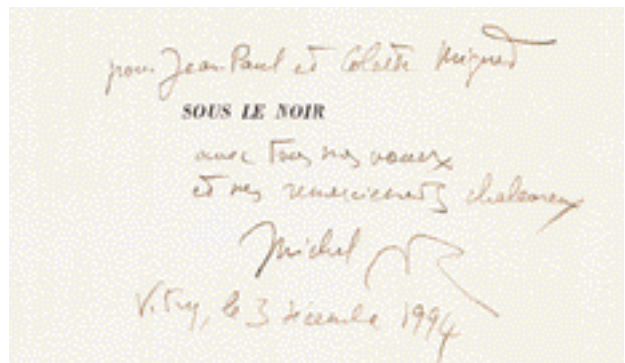 pour Jean Paul et Colette Miguet
SOUS LE NOIR
avec tous nos voeux
et nos remerciements chaleureux
Michel
Vitry, le 3 décembre 1994